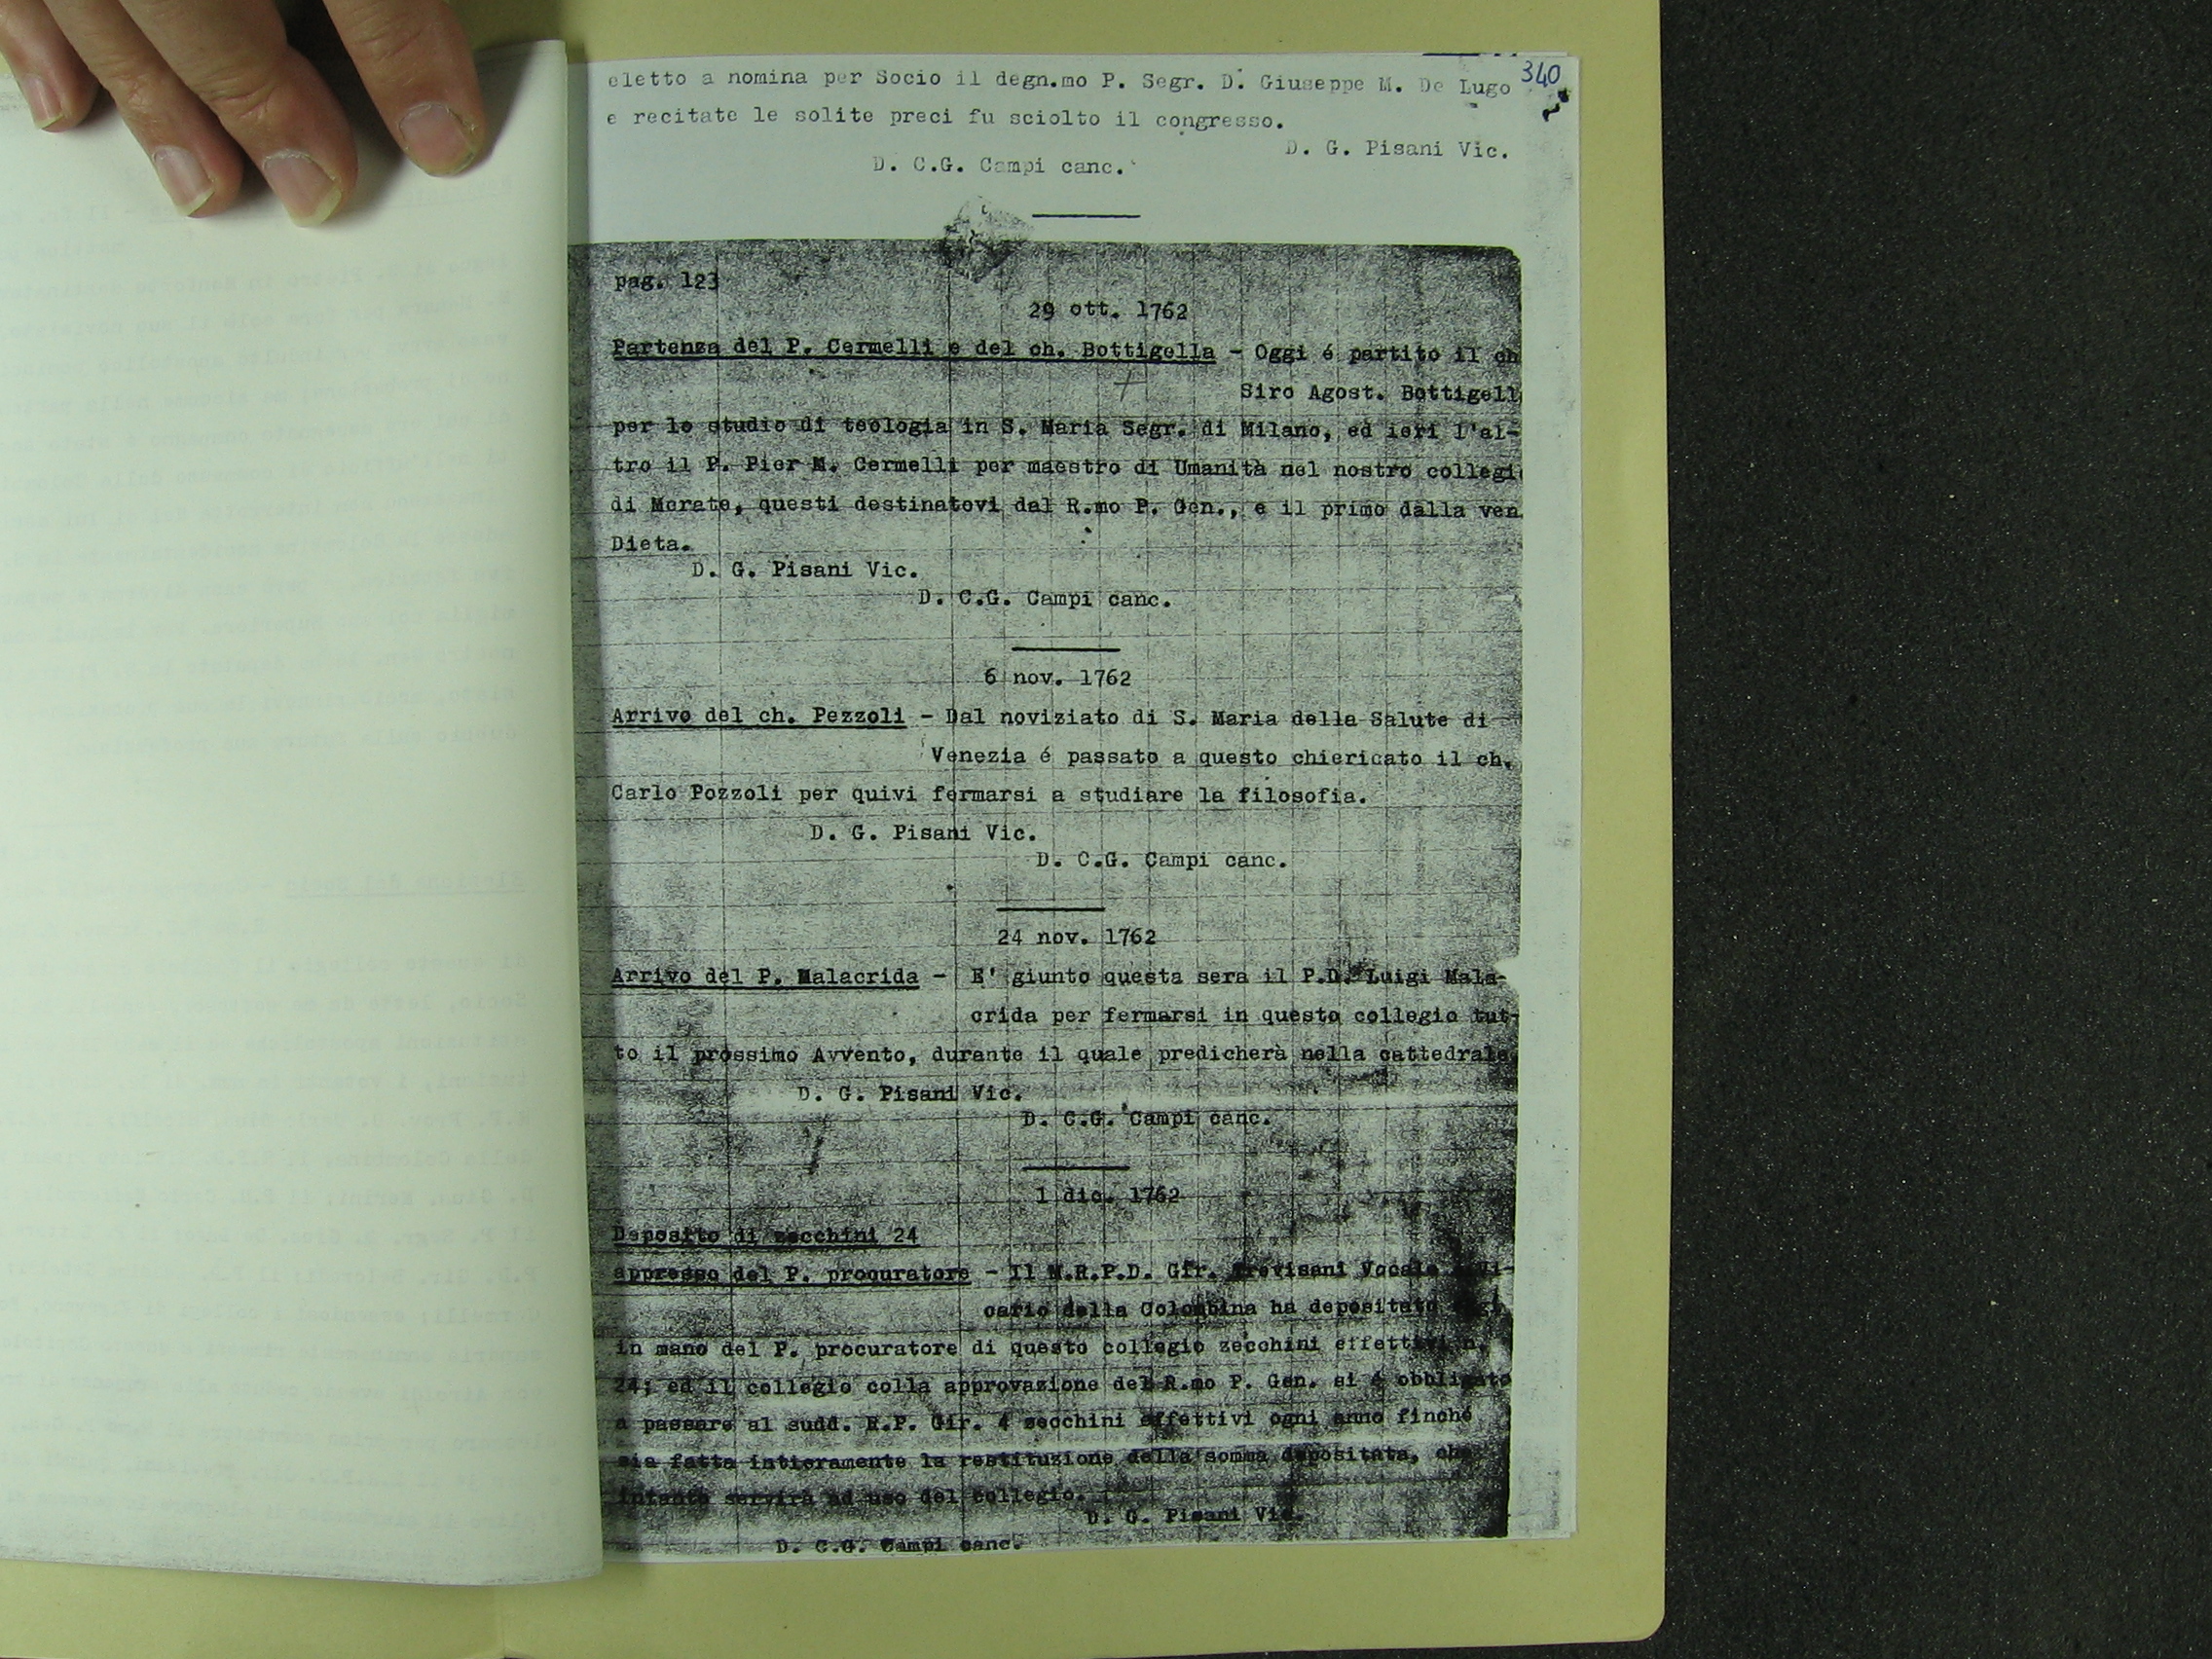 340
eletto a nomina per Socio il degn.mo P. Segr. D. Giuseppe M. De Lugo
e recitate le solite preci fu sciolto il congresso.
D. G. Pisani Vic.
D. C.G. Campi canc.
pag. 123
29 ott. 1762
Partenza del P. Cermelli e del ch. Bottigella - Oggi é partito il ch
Siro Agost. Bottigell
per lo studio di teologia in S. Maria Segr. di Milano, ed ieri l'al-
tro il P. Pier M. Cermelli per maestro di Umanità nel nostro collegi
di Merate, questi destinatovi dal R.mo P. Gen., e il primo dalla ven
Dieta.
D. G. Pisani Vic.
D. C.G. Campi canc.
6 nov. 1762
Arrivo del ch. Pezzoli - Dal noviziato di S. Maria della Salute di
Venezia é passato a questo chiericato il ch.
Carlo Pozzoli per quivi fermarsi a studiare la filosofia.
D. G. Pisani Vic.
D. C.G. Campi canc.
24 nov. 1762
Arrivo del P. Malacrida - E' giunto questa sera il P.D. Luigi Mala-
crida per fermarsi in questo collegio tut-
to il prossimo Avvento, durante il quale predicherà nella cattedrale
D. G. Pisani Vic.
D. C.G. Campi canc.
1 dic. 1762
Deposito di zecchini 24
appresso del P. procuratore - Il M.R.P.D. Gir. Trevisani Vocale Vi-
cario della Colombina ha depositato oggi
in mano del P. procuratore di questo collegio zecchini effettivi n.
24; ed il collegio colla approvazione del R.mo P. Gen. si é obbligato
a passare al sudd. R.P. Gir. 4 zecchini effettivi ogni anno finché
sia fatta intieramente la restituzione della somma depositata, che
intanto servirà ad uso del collegio.
D. G. Pisani Vic.
D. C.G. Campi canc.